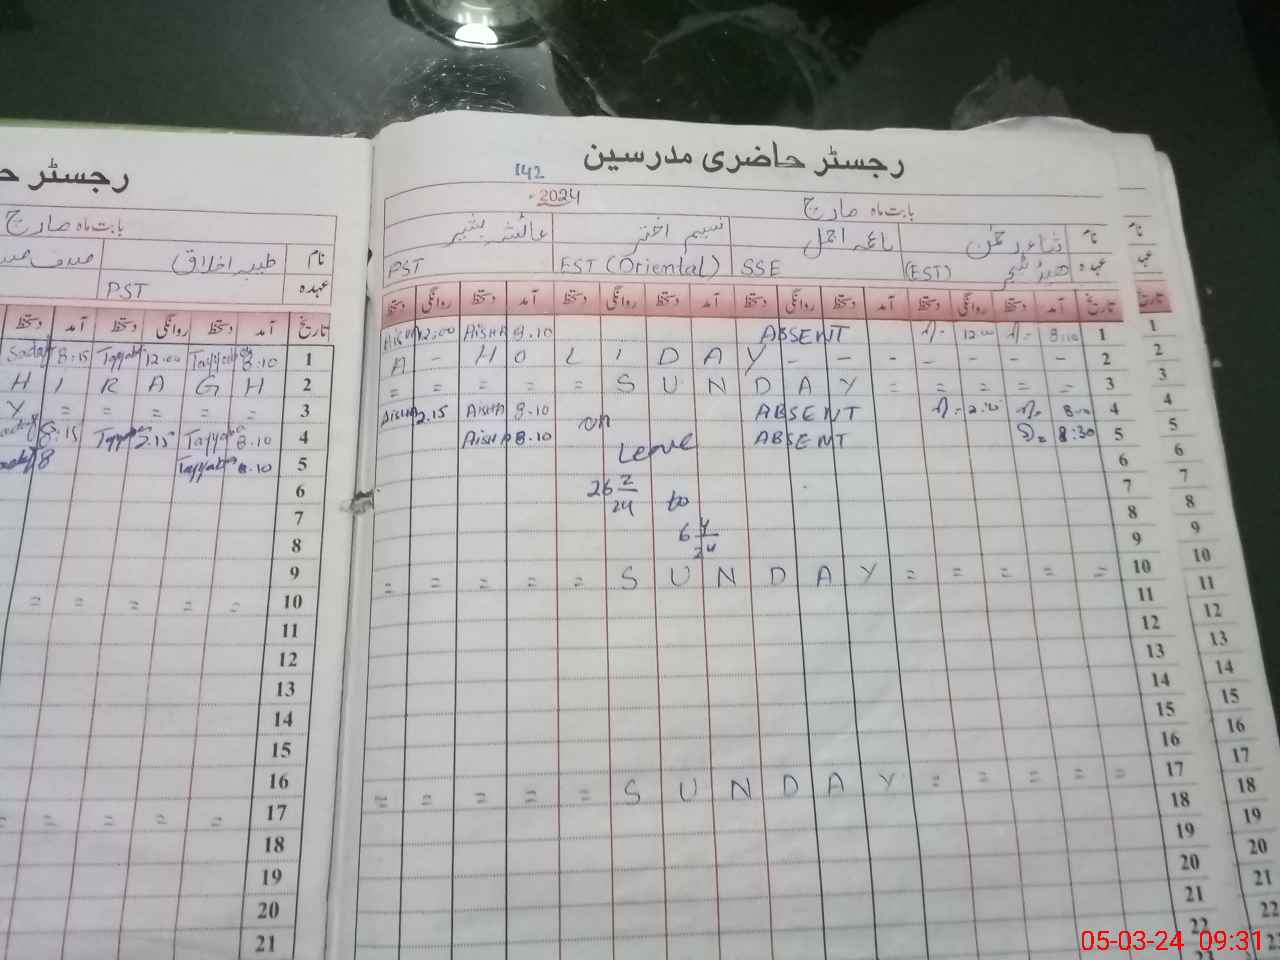 رجسٹر حاضری مدرسین
142
2024
بابت ماہ مارچ
نام شاعر رحمٰن نسیم اختر عائشہ بشیر
عہدہ ہیڈ ٹیچر (EST) SSE EST (Oriental) PST
تاریخ آمد دستخط روانگی دستخط آمد دستخط روانگی دستخط آمد دستخط روانگی دستخط آمد دستخط روانگی دستخط
1 8:10 12:00 ABSENT 8.10 AISHA 12:00 AISHA
2 HOLIDAY - - - - - - -
3 = = = = = SUNDAY = = = = =
4 ABSENT 8.10 AISHA 2.15 AISHA
5 8:30 ABSENT 8.10 AISHA
on
Leave
26 2/24 to
6 4/24
6
7
8
9
10 = = = = = SUNDAY = = = = =
11
12
13
14
15
16
17 = = = = = SUNDAY = = = = =
18
19
20
21
22
رجسٹر
بابت ماہ مارچ
نام طیبہ اخلاق
عہدہ PST
تاریخ آمد دستخط روانگی دستخط آمد دستخط
1 8:10 Tayyaba 12:00 Tayyaba 8:15 Sadaf
2 H I R A G H
3 Y = = = = =
4 8.10 Tayyaba 2.15 Tayyaba 8:15
5 8.10 Tayyaba 8
6
7
8
9
10 = = = = =
11
12
13
14
15
16
17 = = = = =
18
19
20
21
نام
تاریخ
1
2
3
4
5
6
7
8
9
10
11
12
13
14
15
16
17
18
19
20
21
22
05-03-24 09:31